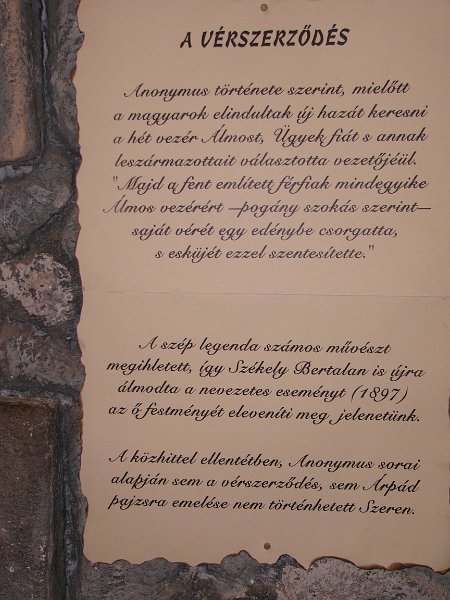 A VÉRSZERZŐDÉS
Anonymus története szerint, mielőtt
a magyarok elindultak új hazát keresni
a hét vezér Álmost, Ügyek fiát s annak
leszármazottait választotta vezetőjéül.
"Majd a fent említett férfiak mindegyike
Álmos vezérért —pogány szokás szerint—
saját vérét egy edénybe csorgatta,
s esküjét ezzel szentesítette."
A szép legenda számos művészt
megihletett, így Székely Bertalan is újra
álmodta a nevezetes eseményt (1897)
az ő festményét eleveníti meg jelenetünk.
A közhittel ellentétben, Anonymus sorai
alapján sem a vérszerződés, sem Árpád
pajzsra emelése nem történhetett Szeren.